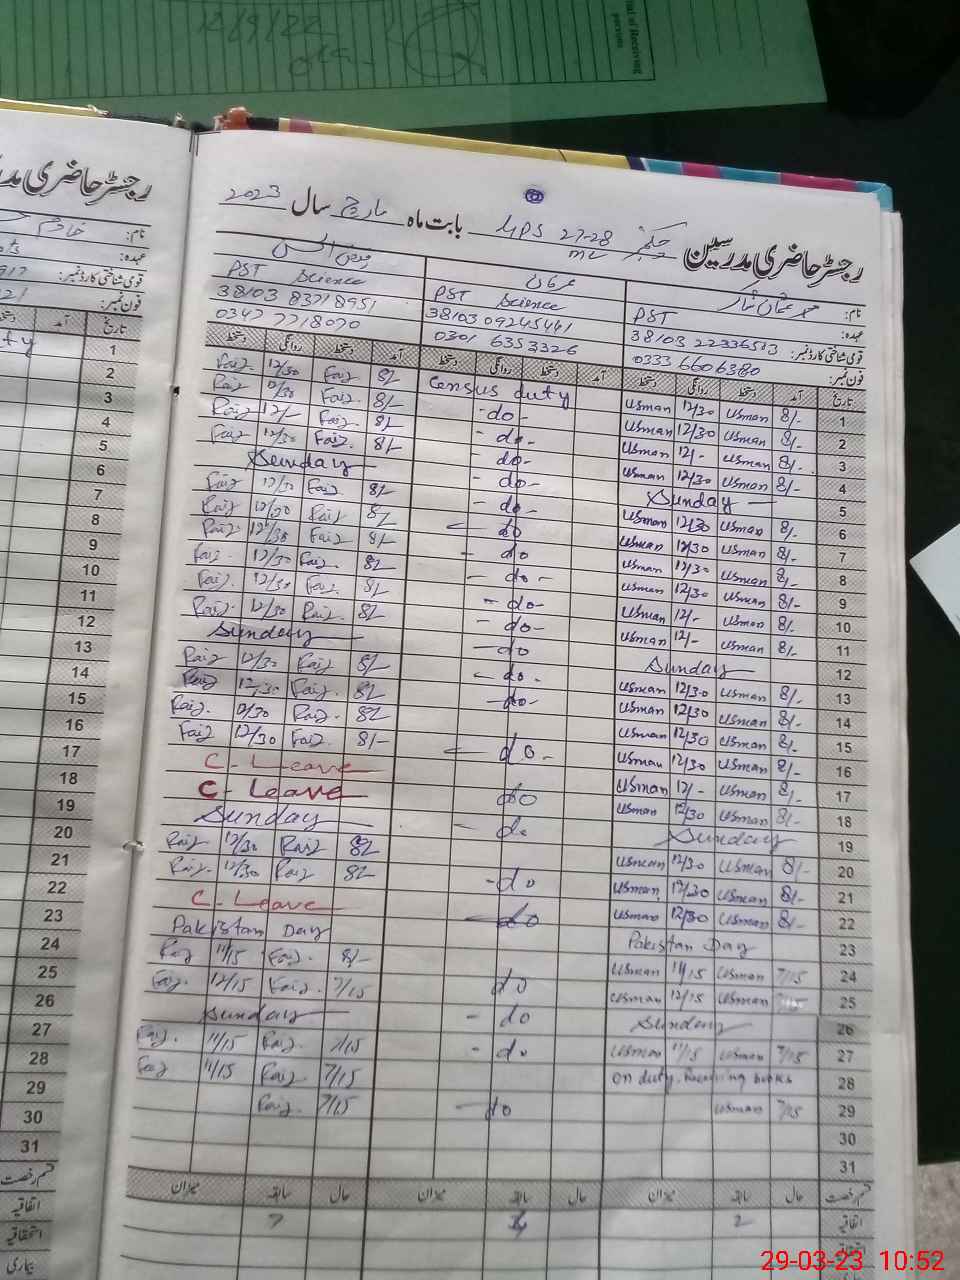 12/9/22
Signal of Receiving persons
رجسٹر حاضری مدرسین GPS 27-28 ML بابت ماہ مارچ سال 2023
نام:
عہدہ: PST
قومی شناختی کارڈ نمبر: 38103 22336513
فون نمبر: 0333 6606380
PST Science
38103 09245441
0301 6353326
PST Science
38103 83718951
0347 7718070
تاریخ آمد دستخط روانگی دستخط آمد دستخط روانگی دستخط آمد دستخط روانگی دستخط
1 8/- Usman 12/30 Usman Census duty 8/- Faiz 12/30 Faiz
2 8/- Usman 12/30 Usman -do- 8/- Faiz 12/30 Faiz
3 8/- Usman 12/- Usman -do- 8/- Faiz 12/- Faiz
4 8/- Usman 12/30 Usman -do- 8/- Faiz 12/30 Faiz
5 Sunday -do- Sunday
6 8/- Usman 12/30 Usman -do- 8/- Faiz 12/30 Faiz
7 8/- Usman 12/30 Usman do 8/- Faiz 12/30 Faiz
8 8/- Usman 12/30 Usman -do 8/- Faiz 12/30 Faiz
9 8/- Usman 12/30 Usman -do- 8/- Faiz 12/30 Faiz
10 8/- Usman 12/- Usman -do- 8/- Faiz 12/30 Faiz
11 8/- Usman 12/- Usman -do- 8/- Faiz 12/30 Faiz
12 Sunday -do Sunday
13 8/- Usman 12/30 Usman -do- 8/- Faiz 12/30 Faiz
14 8/- Usman 12/30 Usman -do- 8/- Faiz 12/30 Faiz
15 8/- Usman 12/30 Usman 8/- Faiz 12/30 Faiz
16 8/- Usman 12/30 Usman -do- 8/- Faiz 12/30 Faiz
17 8/- Usman 12/- Usman C-Leave
18 8/- Usman 12/30 Usman do C-Leave
19 Sunday -do Sunday
20 8/- Usman 12/30 Usman 8/- Faiz 12/30 Faiz
21 8/- Usman 12/30 Usman -do 8/- Faiz 12/30 Faiz
22 8/- Usman 12/30 Usman -do C-Leave
23 Pakistan Day Pakistan Day
24 7/15 Usman 11/15 Usman 8/- Faiz 11/15 Faiz
25 Usman 12/15 Usman do 7/15 Faiz 12/15 Faiz
26 Sunday -do Sunday
27 7/15 Usman 11/15 Usman -do 7/15 Faiz 11/15 Faiz
28 on duty. Receiving books 7/15 Faiz 11/15 Faiz
29 7/15 Usman -do 7/15 Faiz
30
31
قسم رخصت حال سابقہ میزان حال سابقہ میزان حال سابقہ میزان
اتفاقیہ 2 7
رجسٹر حاضری مدر
نام: خادم
عہدہ:
قومی شناختی کارڈ نمبر:
فون نمبر:
تاریخ آمد
1
2
3
4
5
6
7
8
9
10
11
12
13
14
15
16
17
18
19
20
21
22
23
24
25
26
27
28
29
30
31
قسم رخصت
اتفاقیہ
استحقاقیہ
بیماری
29-03-23 10:52